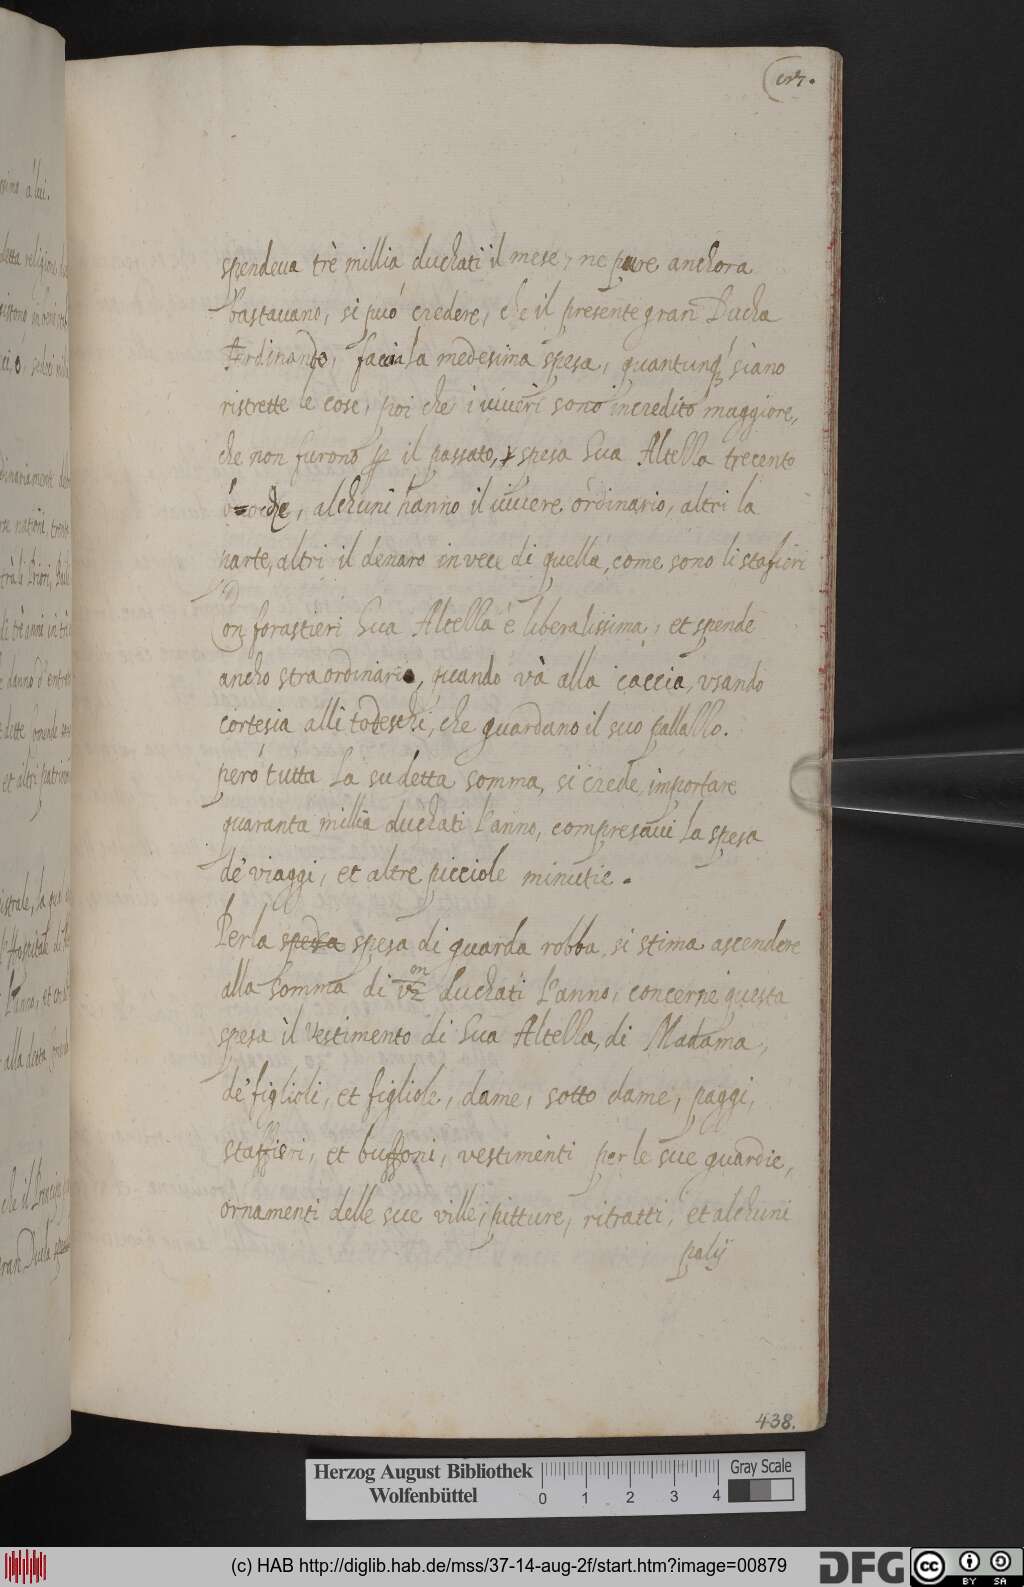 spendeua trè millia duchati il mese, ne pure anchora
bastauano, si può credere, che il presente gran Ducha
Ferdinando, faccia la medesima spesa, quantunq' siano
ristrette le cose, poi che i viueri sono in credito maggiore,
che non furono p il passato, spesa Sua Altezza trecento
bocche, alchuni hanno il viuere ordinario, altri la
parte, altri il denaro in vece di quella, come sono li stafieri
Con forastieri Sua Altezza è liberalissima, et spende
ancho straordinario, quando và alla caccia, usando
cortesia alli todeschi, che guardano il suo pallazzo.
però tutta la sudetta somma, si crede, importare
quaranta millia duchati l'anno, compresaui la spesa
de' viaggi, et altre picciole minutie.
Per la spesa di guarda robba, si stima ascendere
alla somma di duchati l'anno, concerne questa
spesa il vestimento di Sua Altezza, di Madama,
de' figlioli, et figliole, dame, sotto dame, paggi,
staffieri, et buffoni, vestimenti per le sue guardie,
ornamenti delle sue ville, pitture, ritratti, et alchuni
palij
438.
Herzog August Bibliothek
Wolfenbüttel
0 1 2 3 4
Gray Scale
(c) HAB http://diglib.hab.de/mss/37-14-aug-2f/start.htm?image=00879
DFG
cc BY SA